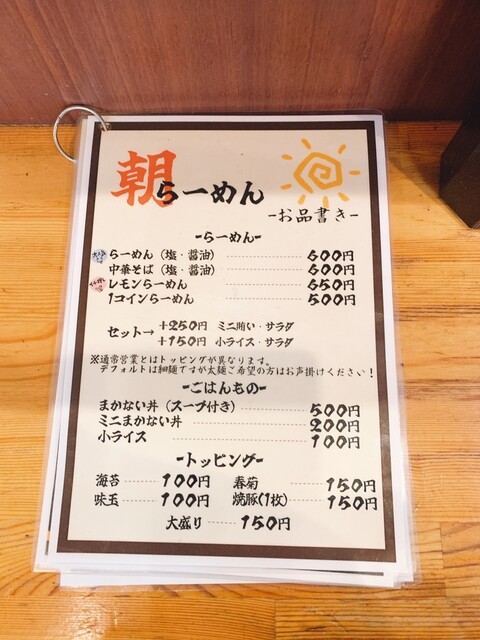 朝らーめん
-お品書き-
-らーめん-
らーめん（塩・醤油） 600円
中華そば（塩・醤油） 600円
レモンらーめん 650円
1コインらーめん 500円
セット→ +250円 ミニ賄い・サラダ
+150円 小ライス・サラダ
※通常営業とはトッピングが異なります。
デフォルトは細麺ですが太麺ご希望の方はお声掛けください！
-ごはんもの-
まかない丼（スープ付き） 500円
ミニまかない丼 200円
小ライス 100円
-トッピング-
海苔 100円 春菊 150円
味玉 100円 焼豚(1枚) 150円
大盛り 150円